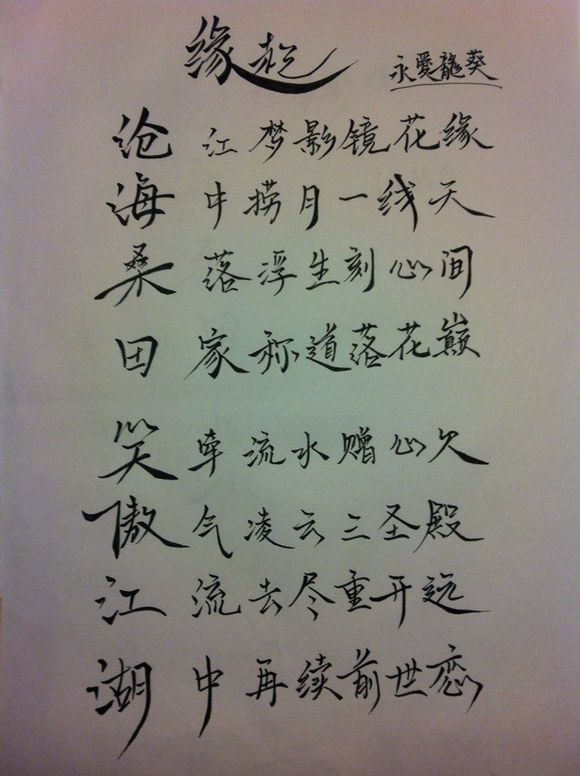 缘起
永爱龍葵
沧江梦影镜花缘
海中捞月一线天
桑落浮生刻心间
田家称道落花巅
笑牵流水赠心欠
傲气凌云三圣殿
江流去尽重开远
湖中再续前世恋